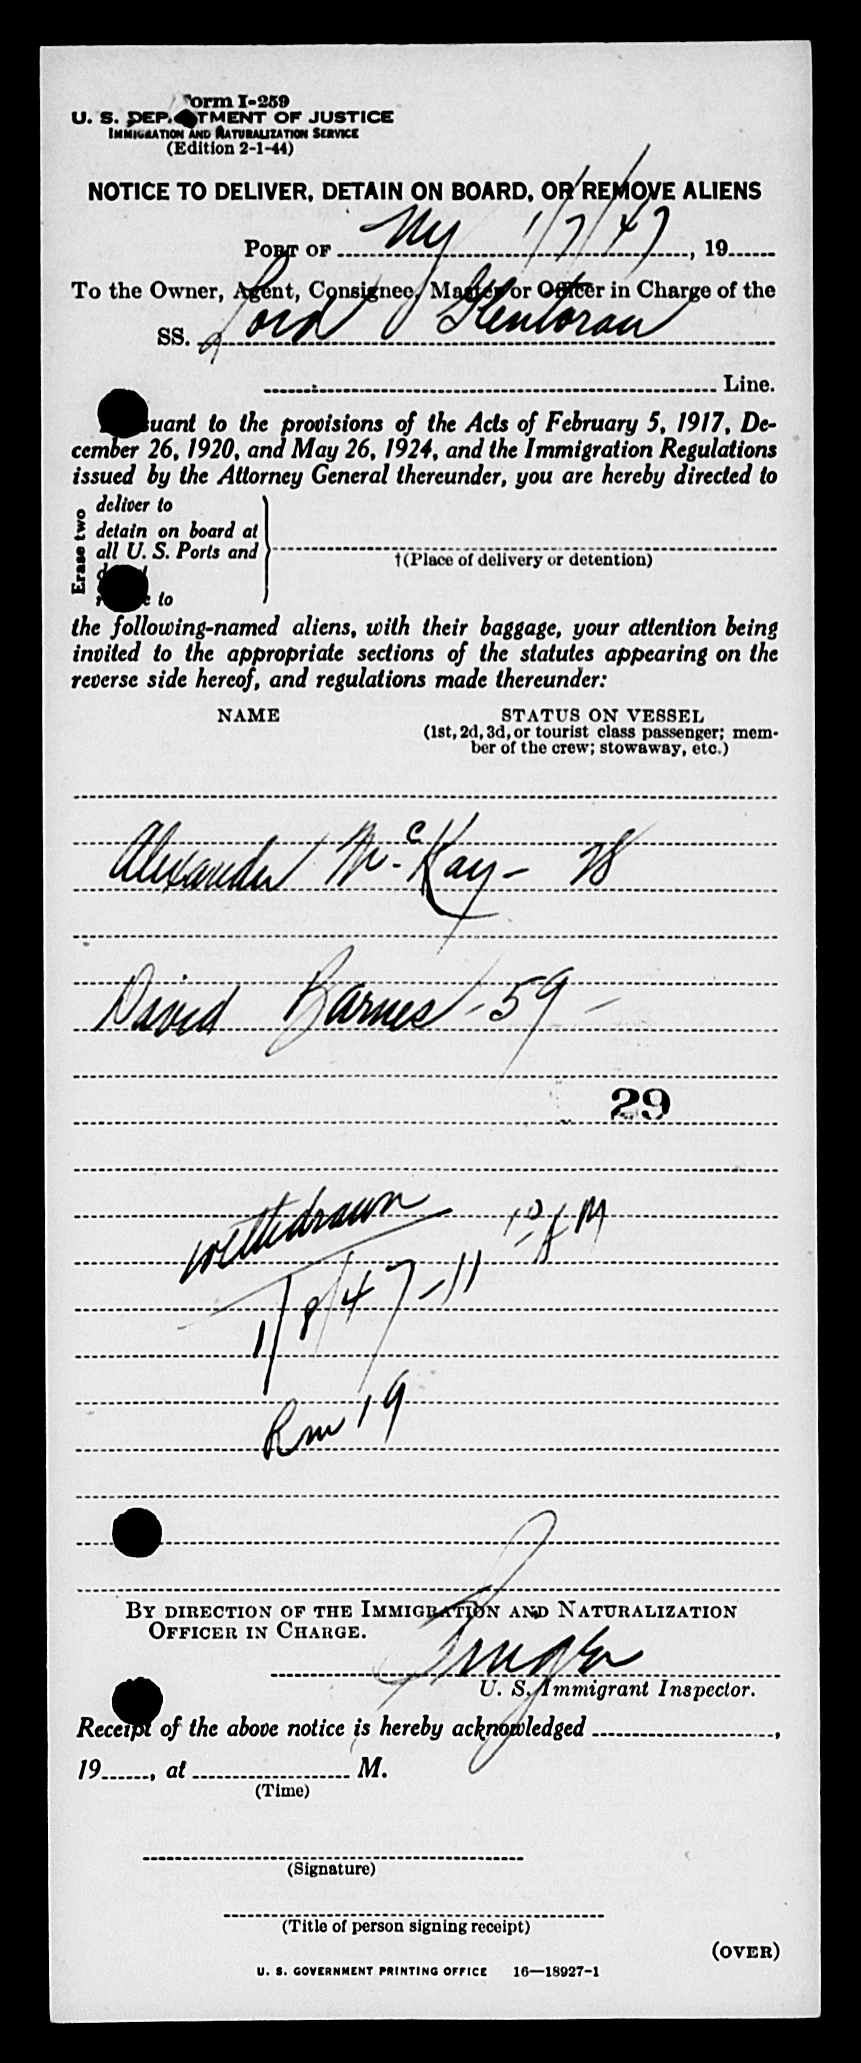 Form I-259
U. S. DEPARTMENT OF JUSTICE
IMMIGRATION AND NATURALIZATION SERVICE
(Edition 2-1-44)
NOTICE TO DELIVER, DETAIN ON BOARD, OR REMOVE ALIENS
PORT OF NY 1/7/47, 19
To the Owner, Agent, Consignee, Master or Officer in Charge of the
SS. Lord Glentoran
Line.
Pursuant to the provisions of the Acts of February 5, 1917, De-
cember 26, 1920, and May 26, 1924, and the Immigration Regulations
issued by the Attorney General thereunder, you are hereby directed to
Erase two
deliver to
detain on board at
all U. S. Ports and
to
†(Place of delivery or detention)
the following-named aliens, with their baggage, your attention being
invited to the appropriate sections of the statutes appearing on the
reverse side hereof, and regulations made thereunder:
NAME STATUS ON VESSEL
(1st, 2d, 3d, or tourist class passenger; mem-
ber of the crew; stowaway, etc.)
Alexander McKay - 28
David Barnes - 59 -
29
withdrawn
1/8/47 - 11 10 AM
Rm 19
BY DIRECTION OF THE IMMIGRATION AND NATURALIZATION
OFFICER IN CHARGE.
U. S. Immigrant Inspector.
Receipt of the above notice is hereby acknowledged ,
19 , at M.
(Time)
(Signature)
(Title of person signing receipt)
(OVER)
U. S. GOVERNMENT PRINTING OFFICE 16—18927-1